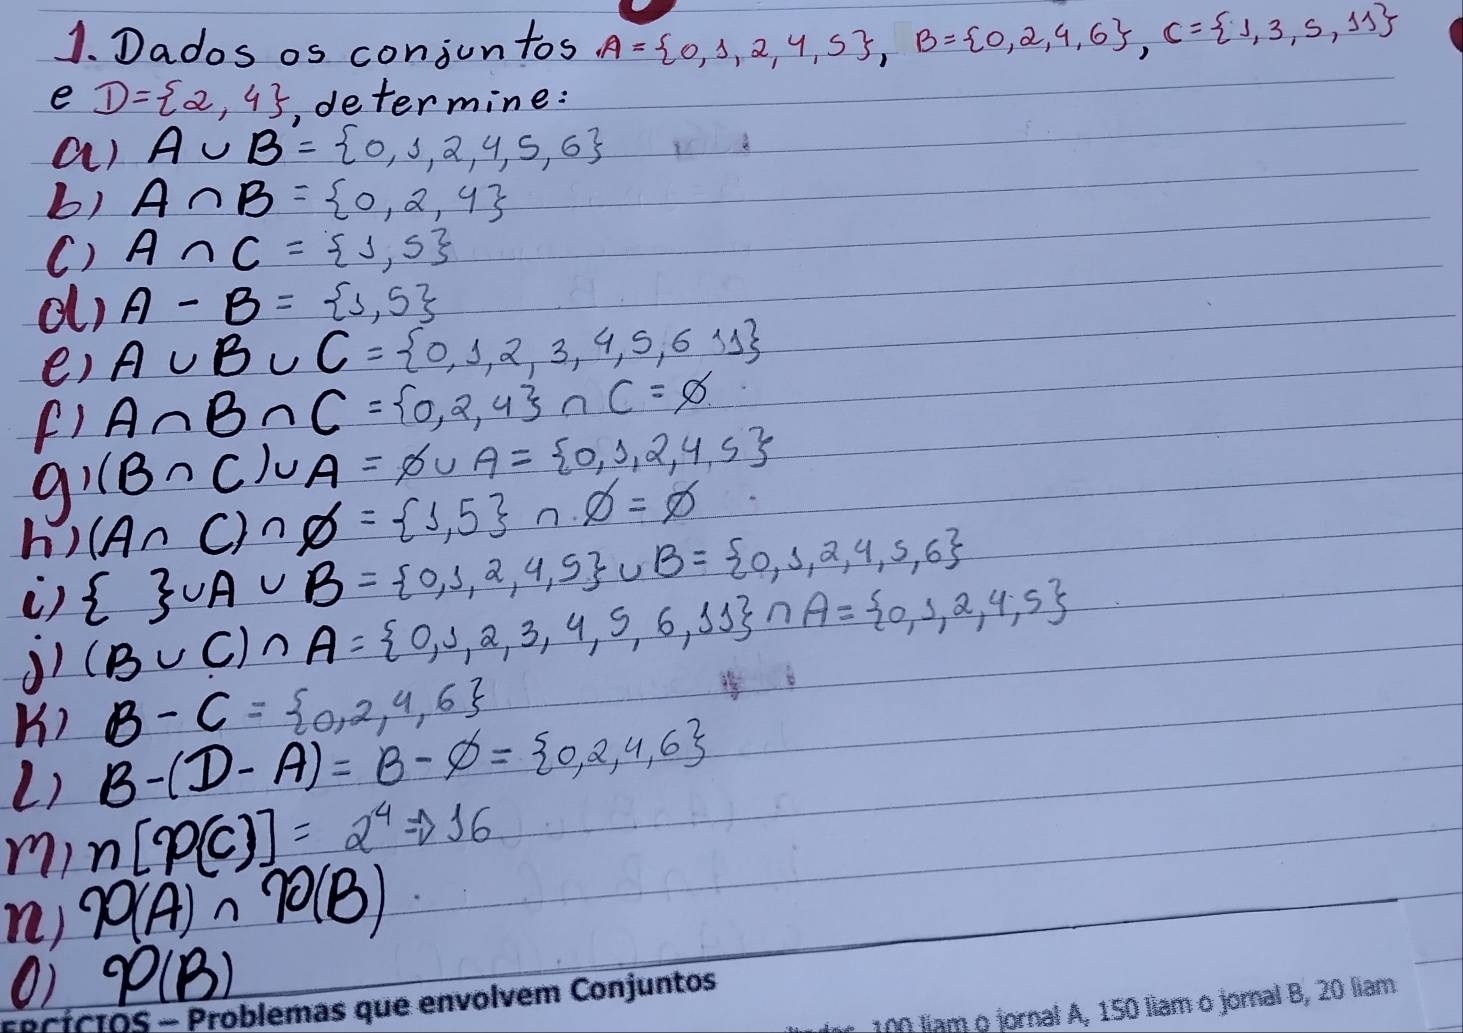 1. Dados os conjuntos A={0,1,2,4,5}, B={0,2,4,6}, C={1,3,5,11}
e D={2,4}, determine:
a) A∪B={0,1,2,4,5,6}
b) A∩B={0,2,4}
c) A∩C={1,5}
d) A-B={1,5}
e) A∪B∪C={0,1,2,3,4,5,6 11}
f) A∩B∩C={0,2,4}∩C=∅
g) (B∩C)∪A=∅∪A={0,1,2,4,5}
h) (A∩C)∩∅={1,5}∩∅=∅
i) { }∪A∪B={0,1,2,4,5}∪B={0,1,2,4,5,6}
j) (B∪C)∩A={0,1,2,3,4,5,6,11}∩A={0,1,2,4,5}
K) B-C={0,2,4,6}
L) B-(D-A)=B-∅={0,2,4,6}
m) n[P(C)]=2⁴⇒16
n) P(A)∩P(B)
o) P(B)
ERCÍCIOS – Problemas que envolvem Conjuntos
100 liam o jornal A, 150 liam o jornal B, 20 liam